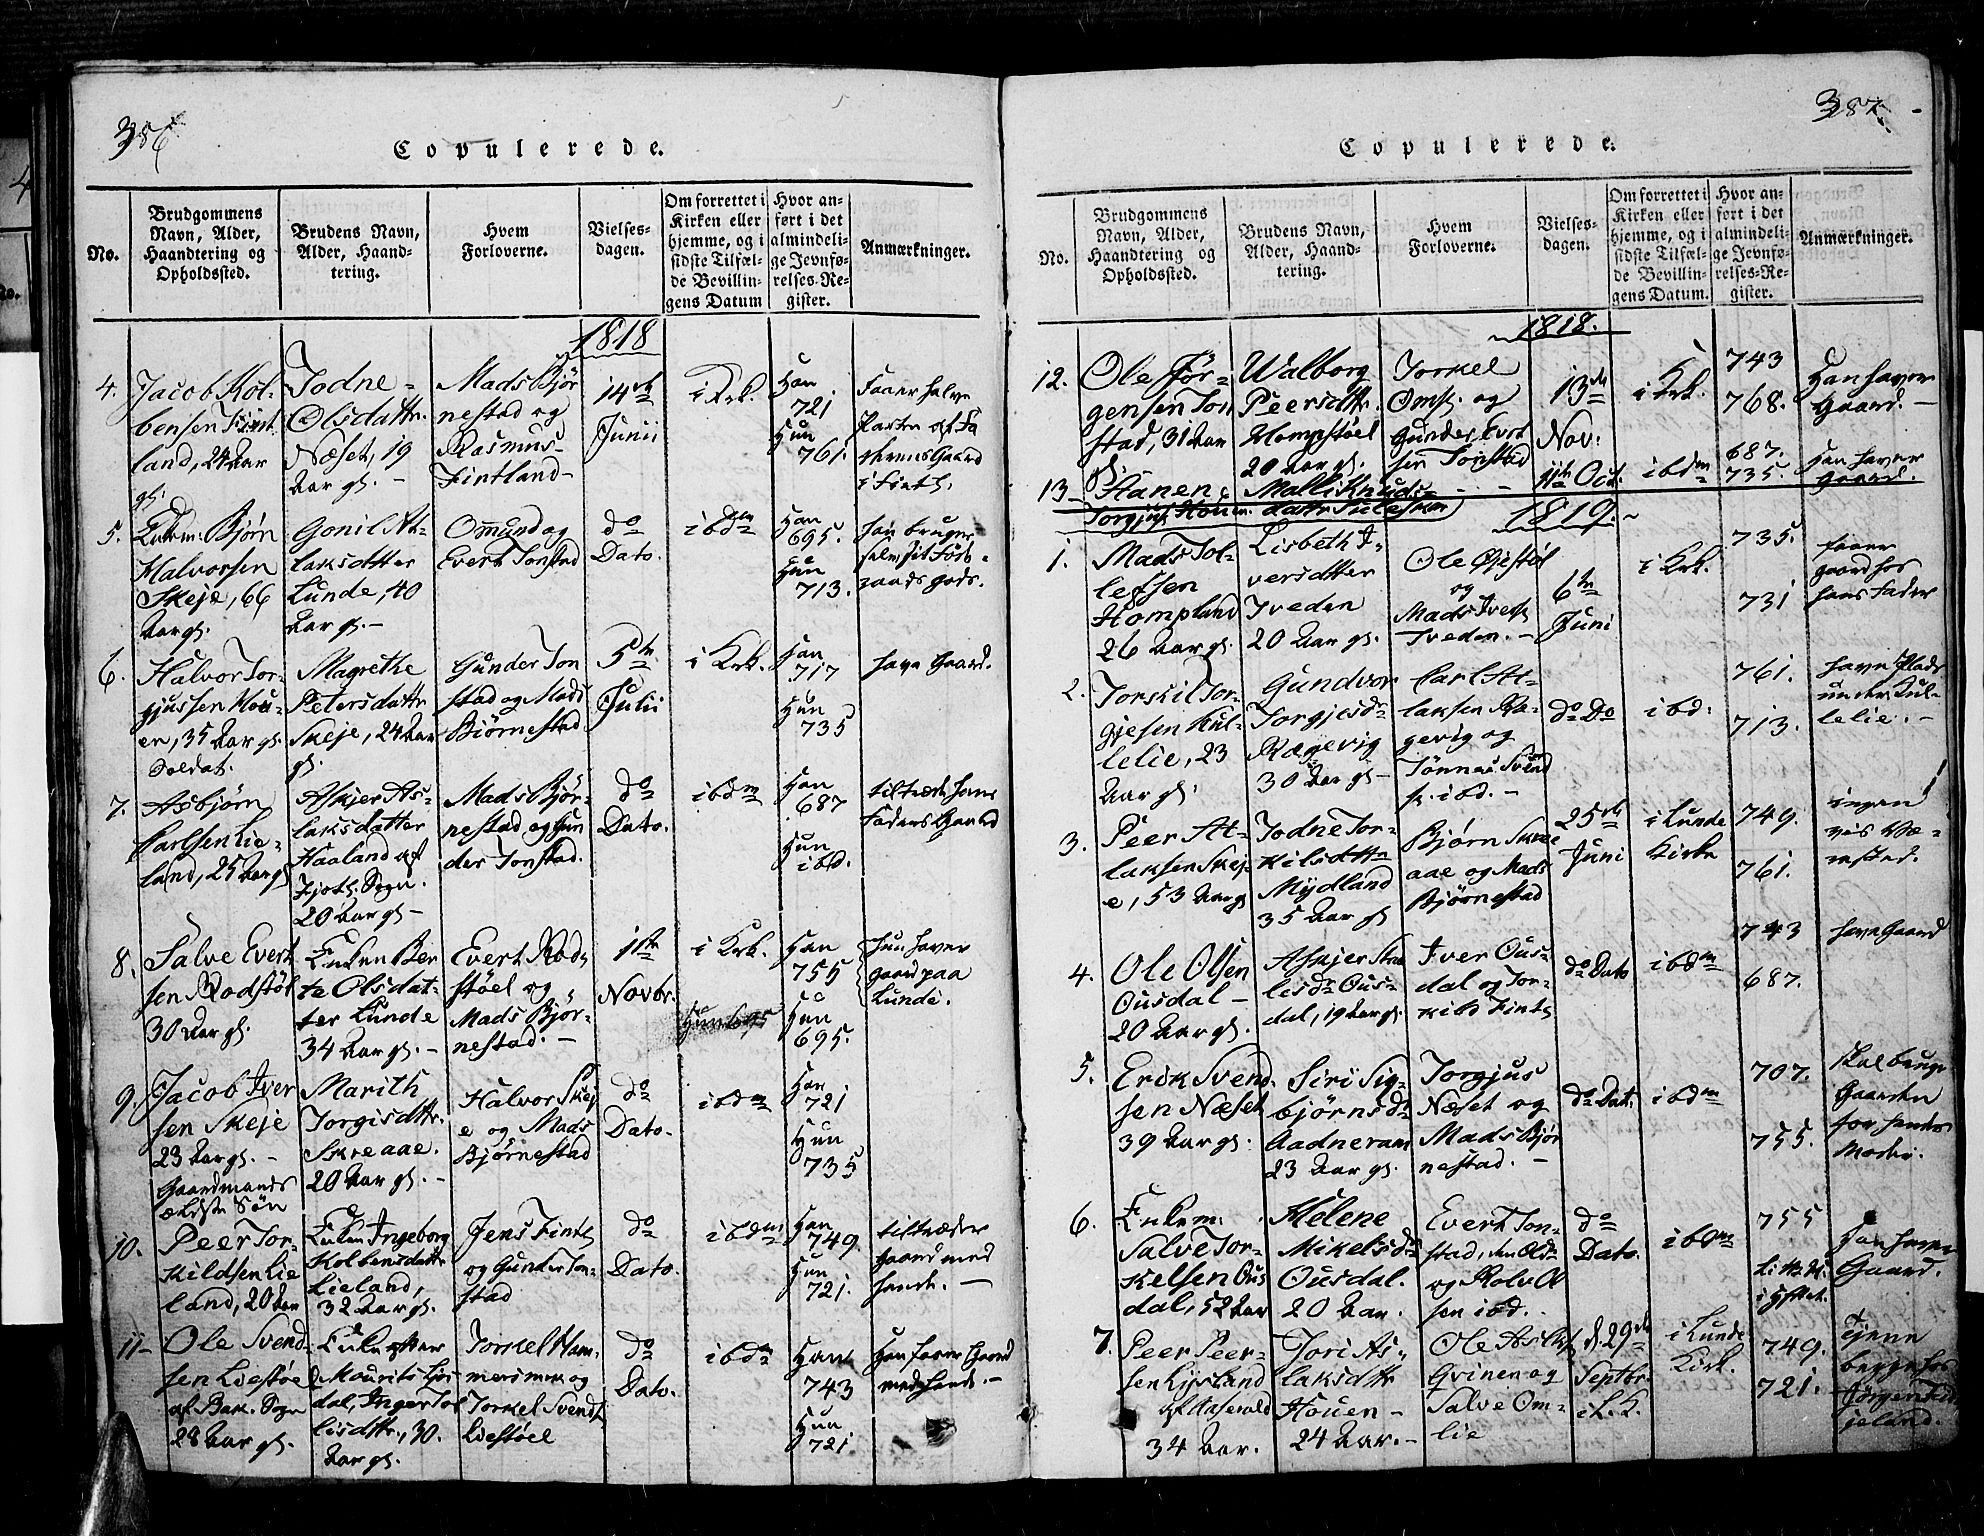 386
Copulerede.
No.
Brudgommens Navn, Alder, Haandtering og Opholdssted.
Brudens Navn, Alder, Haandtering.
Hvem Forloverne.
Vielses-dagen.
Om forrettet i Kirken eller hjemme, og i sidste Tilfælde Bevillingens Datum
Hvor anført i det almindelige Jevnførelses-Register.
Anmærkninger.
1818
4.
Jacob Kol-
bensen Fint
land, 24 Aar
gl.
Todne
Olsdattr.
Næset, 19
Aar gl. -
Mads Bjør
nestad og
Rasmus
Fintland -
14de
Junii
i Krk.
Han
721
Hun
761.
5.
Enkem. Bjørn
Halvorsen
Skeje, 66
Aar gl.
Gonil At-
laksdatter
Lunde, 40
Aar gl. -
Omund og
Evert Tonstad
do
Dato.
ibdm
Han
695.
Hun
713.
6.
Halvor Tor-
gjussen Hou-
en, 35 Aar gl.
Soldat.
Magrethe
Petersdattr
Skeje, 24 Aar
gl.
Gunder Ton
stad og Mads
Bjørnestad
5te
Julii
i Krk.
Han
717
Hun
735
have Gaard.
7.
Asbjørn
Carlsen Lie-
land, 25 Aar gl
Askjer As-
laksdatter
Haaland af
Fjotl. Sogn.
20 Aar gl -
Mads Bjør-
nestad og Gun
der Tonstad.
do
Dato.
ibdm
Han
687
Hun
ibd.
tiltræde hans
Faders Gaard
8.
Salve Evert
sen Rodstøl
30 Aar gl.
Enken Ber
te Olsdat-
ter Lunde
34 Aar gl. -
Evert Rod-
støel og
Mads Bjør-
nestad. -
1ste
Novbr.
i Krk.
Han
755
Hun
695.
Hun haver
gaard paa
Lunde.
9.
Jacob Iver
sen Skeje
23 Aar gl. -
Gaardmands
ældste Søn
Marith
Torgisdttr.
Skreaae.
20 Aar gl. -
Halvor Skej
e og Mads
Bjørnestad
do
Dato.
ibdm
Han
721
Hun
735
10.
Peer Tor-
kildsen Lie
land, 20 Aar
Enken Ingeborg
Kolbensdattr
Lieland,
32 Aar gl.
Jens Fintl
og Gunder Ton-
stad
do
Dato.
ibdm
Han
749.
Hun
721.
tiltræder
Gaard med
hende. -
11-
Ole Svend-
sen Liestøel
af Bak. Sogn
28 Aar gl.
Tol
lisdttr., 30.
Aar gl.
Torkel Ham-
mersmen og
Torkel Svends
Liestøel
do
Dato.
ibdm
Han
743
Hun
721.
Han faaer Gaard
med hende. -
387
Copulerede.
No.
Brudgommens Navn, Alder, Haandtering og Opholdssted.
Brudens Navn, Alder, Haandtering.
Hvem Forloverne.
Vielses-dagen.
Om forrettet i Kirken eller hjemme, og i sidste Tilfælde Bevillingens Datum.
Hvor anført i det almindelige Jevnførelses-Register.
Anmærkninger.
1818.
12.
Ole Jør-
gensen Ton
stad, 31 Aar
Walborg
Peersdttr.
Hompstøel
20 Aar gl.
Torkel
Oms. og
Gunder Evert
sen Tonstad
13de
Nov:
i Krk.
743
768.
Han haver
Gaard. -
13-
Torgjus Houen
Malli Knuds-
11te Oct.
ibdm
687.
735.
Han haver
gaard.
1819.
1.
Mads Tol-
lefsen
Hompland
26 Aar gl.
Lisbeth I-
versdtter
Tveden
20 Aar gl.
Ole Øjestøl
og
Mads Ivers
Tveden. -
6te
Juni
i Krk.
735.
731
faaer
gaard hos
hans fader
2.
Torkil Tor-
gjesen Kul-
lelie, 23
Aar gl.
Gundvor
Torgjesdr
Rægevig
30 Aar gl -
Carl At-
laksen Ræ-
gevig og
Tønnes Svend
s. ibd. -
do Do
ibd.
761.
713.
have Plads
under Kul-
lelie. -
3.
Peer At-
laksen Skej
e, 53 Aar gl
Todne Tor-
kilsdttr
Mydland
35 Aar gl
Bjørn Skre
aae og Mads
Bjørnestad
25de
Juni
i Lunde
Kirke
749.
761.
ingen
vis Væ-
rested.
4.
Ole Olsen
Ousdal -
20 Aar gl.
Askjer Staa
lesdr Ous-
dal, 19 Aar gl
Iver Ous-
dal og Tor-
kild Fintl
do Dato
ibdm
743
687.
have Gaard
5.
Erik Svend-
sen Næset
39 Aar gl.
Siri Sig-
bjørnsdr
Aadneram
23 Aar gl.
Torgjus
Næset og
Mads Bjør
nestad. -
do Dat.
ibdm
707.
755.
skal bruge
Gaarden
for hendes
Moder.
6.
Enkem.
Salve Tor-
kelsen Ous
dal, 52 Aar
Helene
Mikelsdr
Ousdal.
20 Aar.
Evert Ton-
stad,
og Rolv Ol
sen ibd.
do
Dato.
ibdm
755
Han haver
Gaard.
7.
Peer Peer-
sen
34 Aar.
Tori As-
laksdttr
Houen -
24 Aar. -
Ole Aslaks
Gvinen og
Salve Om-
lie
d. 29de
Septbr.
i Lunde
Kirk.
749.
721.
tjene
begge hos
Jørgen Fid
jeland.